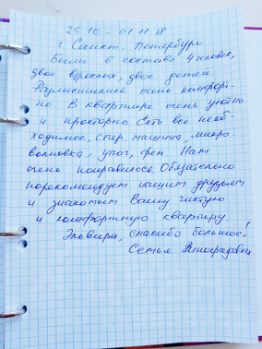 25.10 - 01.11.18
г. Санкт-Петербург
Были в составе 4 человек,
двое взрослых, двое детей.
Разместились очень комфорт-
но. В квартире очень уютно
и просторно. Есть всё необ-
ходимое, стир. машина, микро
волновка, утюг, фен. Нам
очень понравилось. Обязательно
порекомендуем нашим друзьям
и знакомым Вашу чистую
и комфортную квартиру.
Эльвира, спасибо большое!
Семья